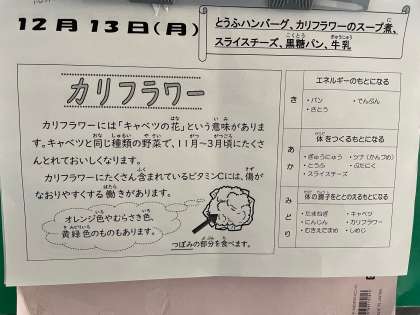 12月13日(月)
とうふハンバーグ、カリフラワーのスープ煮、
スライスチーズ、黒糖パン、牛乳
カリフラワー
カリフラワーには「キャベツの花」という意味がありま
す。キャベツと同じ種類の野菜で、11月〜3月頃にたくさ
んとれておいしくなります。
カリフラワーにたくさん含まれているビタミンCには、傷が
なおりやすくする働きがあります。
オレンジ色やむらさき色、
黄緑色のものもあります。
つぼみの部分を食べます。
き
エネルギーのもとになる
・パン ・でんぷん
・さとう
あか
体をつくるもとになる
・ぎゅうにゅう ・ツナ(かんづめ)
・とうふ ・ぶたにく
・スライスチーズ
みどり
体の調子をととのえるもとになる
・たまねぎ ・キャベツ
・にんじん ・カリフラワー
・むきえだまめ ・しめじ